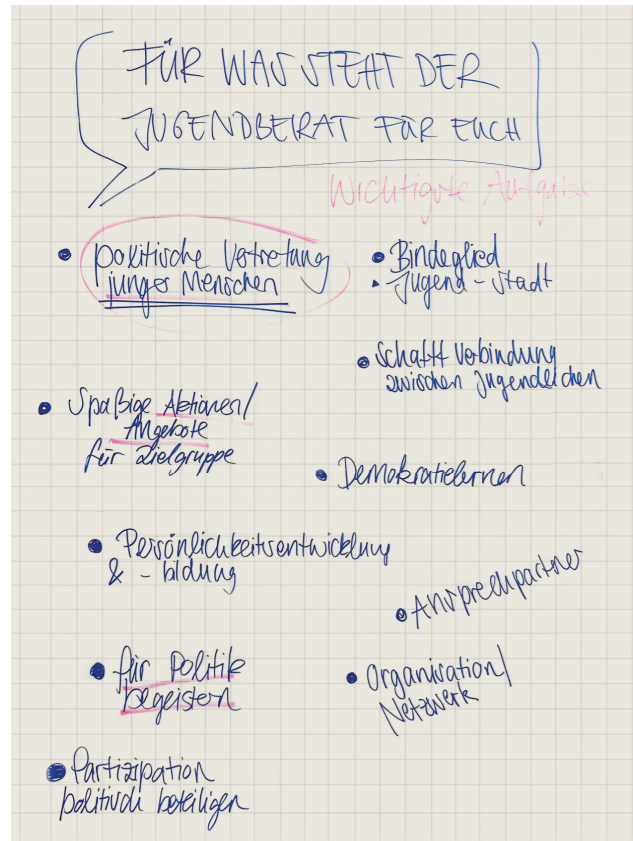 FÜR WAS STEHT DER
JUGENDBEIRAT FÜR EUCH
Wichtigste Aufgabe
• politische Vertretung
junger Menschen
• Bindeglied
• Jugend - Stadt
• schafft Verbindung
zwischen Jugendlichen
• Spaßige Aktionen/
Angebote
für Zielgruppe
• Demokratielernen
• Persönlichkeitsentwicklung
& - bildung
• Ansprechpartner
• für Politik
begeistern
• Organisation/
Netzwerk
• Partizipation
politisch beteiligen